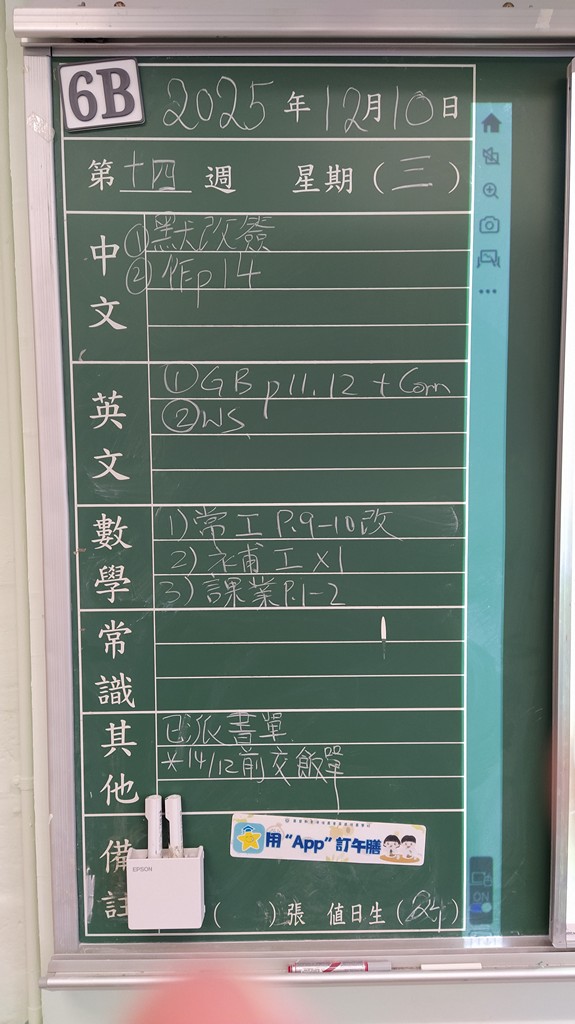 6B
2025年12月10日
第十四週 星期(三)
中文
①默改簽
②作p14
英文
①GB p11.12 + Corr
②WS
數學
1)常工P.9-10改
2)補工x1
3)課業P.1-2
常識
其他
已派書單
*14/12前交飯單
備註
EPSON
用"App"訂午膳
( )張 值日生(24)
CN